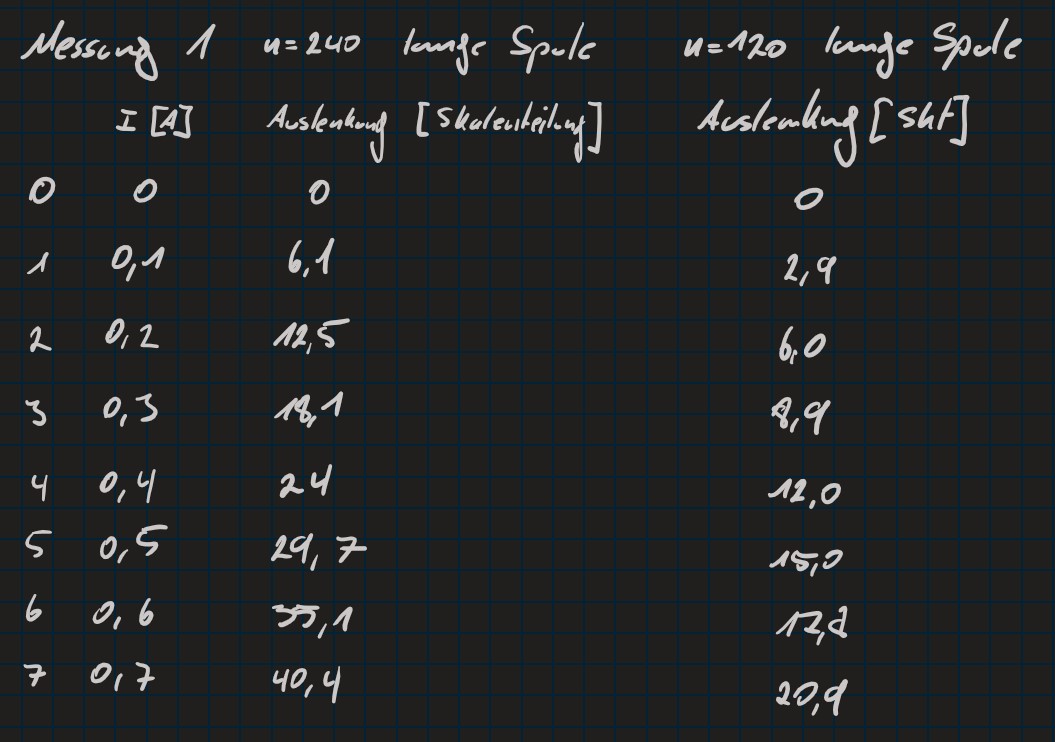 Messung 1 n=240 lange Spule n=120 lange Spule
I [A] Auslenkung [Skalenteilung] Auslenkung [Skt]
0 0 0 0
1 0,1 6,1 2,9
2 0,2 12,5 6,0
3 0,3 18,1 8,9
4 0,4 24 12,0
5 0,5 29,7 15,0
6 0,6 35,1
7 0,7 40,4 20,9